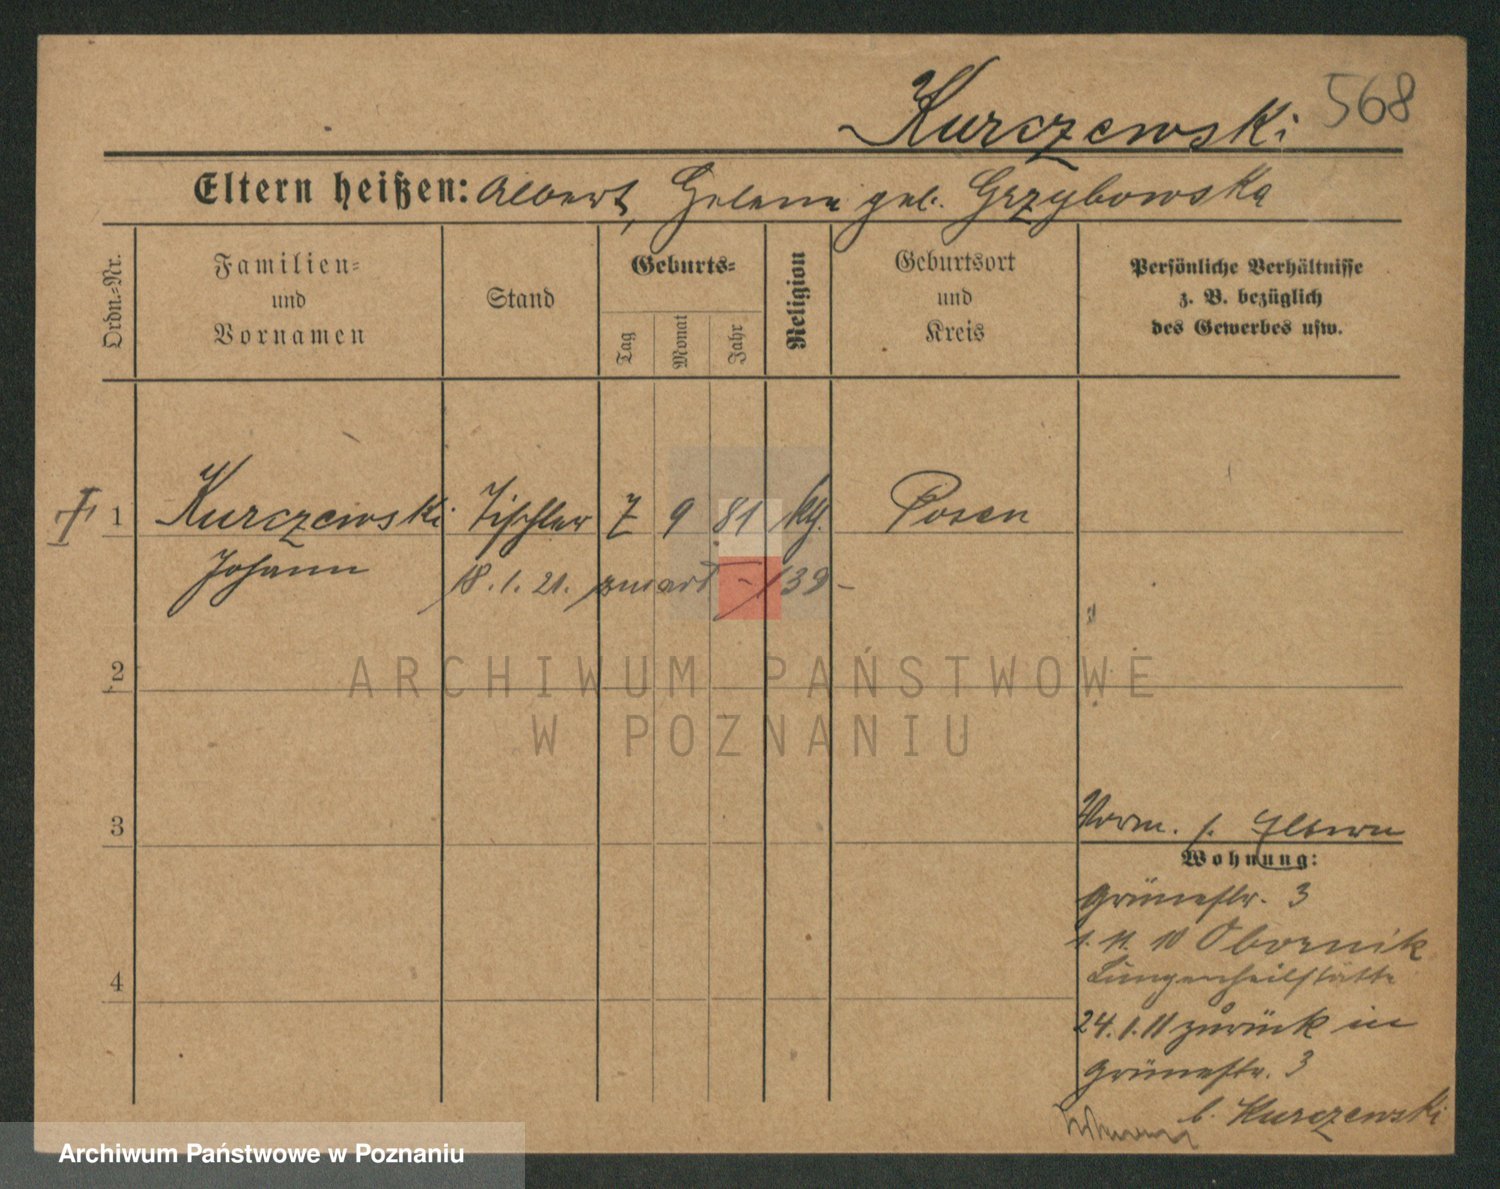 Kurczewski 568
Eltern heißen: Albert, Helene geb. Grzybowska
Ordn.-Nr.
Familien-
und
Vornamen
Stand
Geburts-
Tag
Monat
Jahr
Religion
Geburtsort
und
Kreis
Persönliche Verhältnisse
z. B. bezüglich
des Gewerbes usw.
1 Kurczewski Tischler 7 9 81 kth. Posen
Johann 18.1.21. zmarł - /39 -
2
ARCHIWUM PAŃSTWOWE
W POZNANIU
3
Vorm. s. Eltern
Wohnung:
Grünestr. 3
1. 11. 10 Obornik
Lungenheilstätte
4
24. 1. 11 zurück in
Grünestr. 3
b. Kurczewski
Archiwum Państwowe w Poznaniu